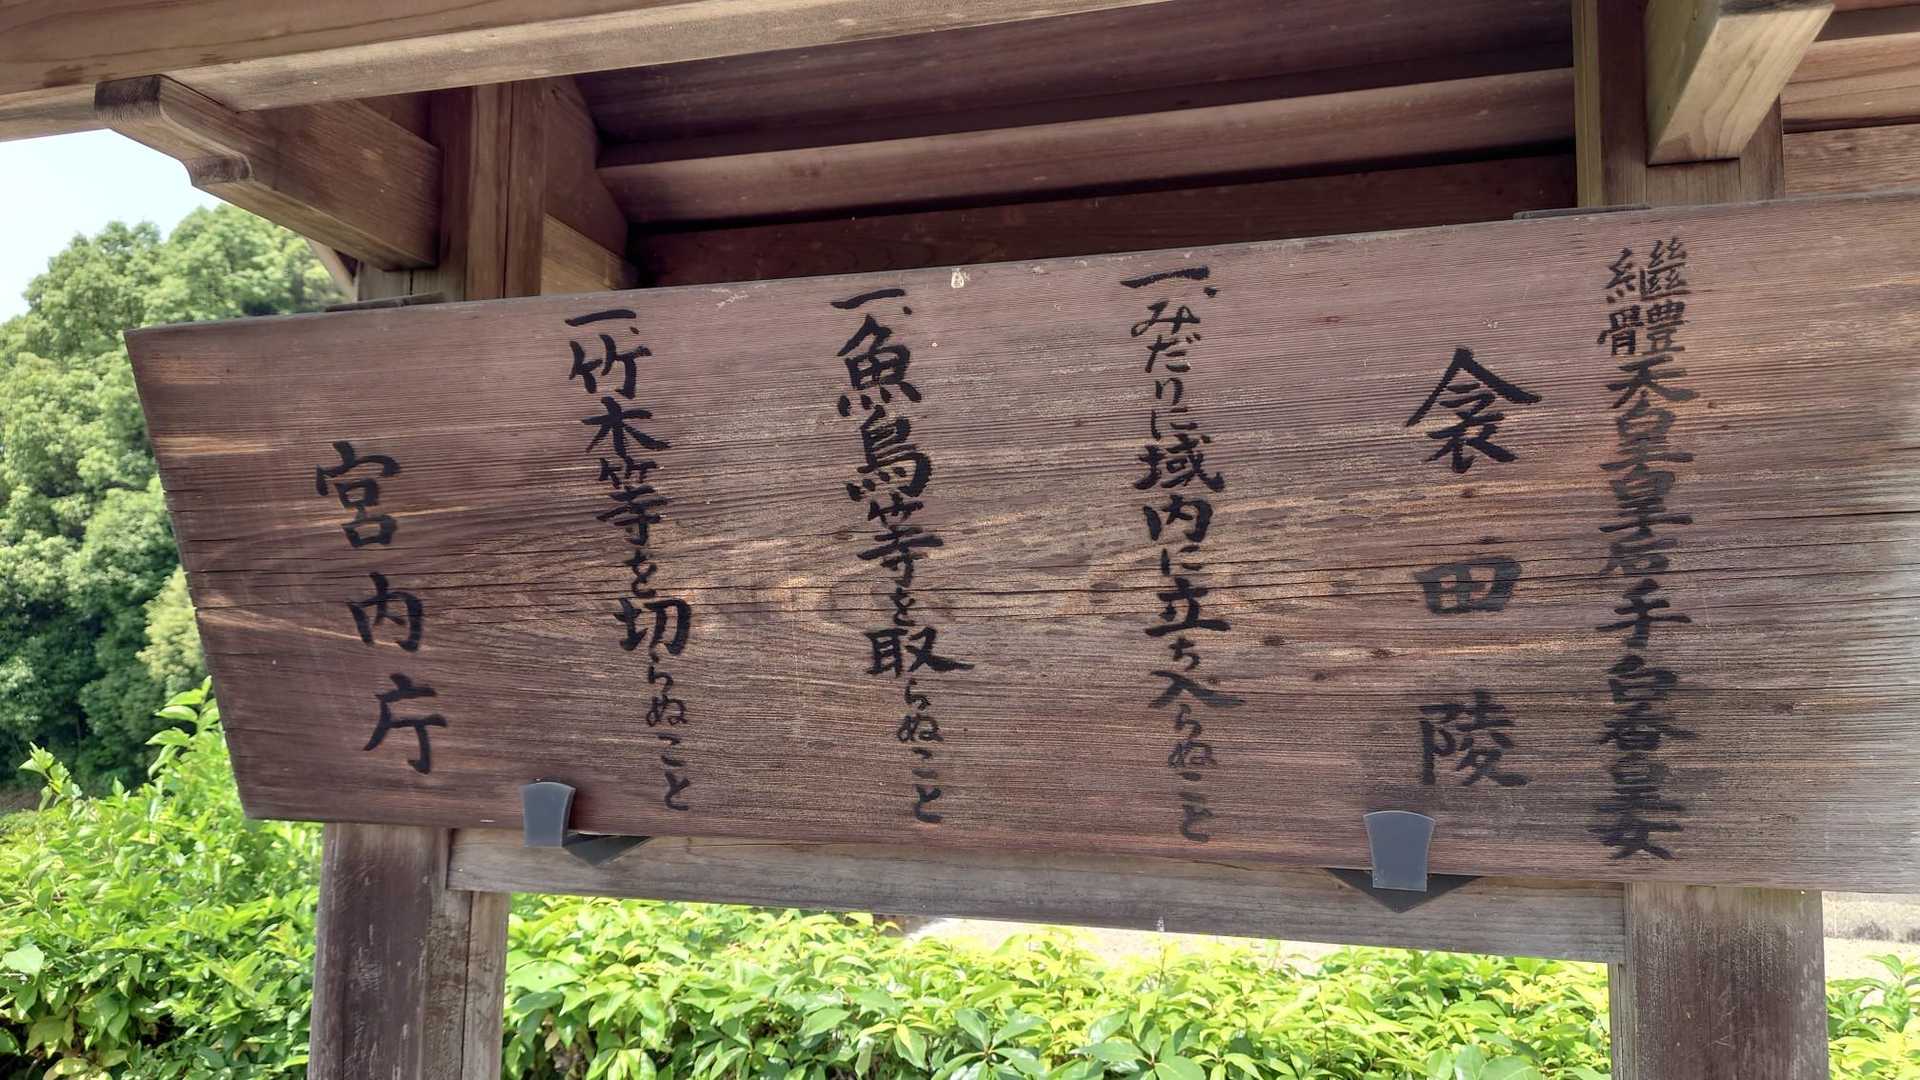 繼體天皇皇后手白香皇女
衾田陵
一、みだりに域内に立ち入らぬこと
一、魚鳥等を取らぬこと
一、竹木等を切らぬこと
宮内庁